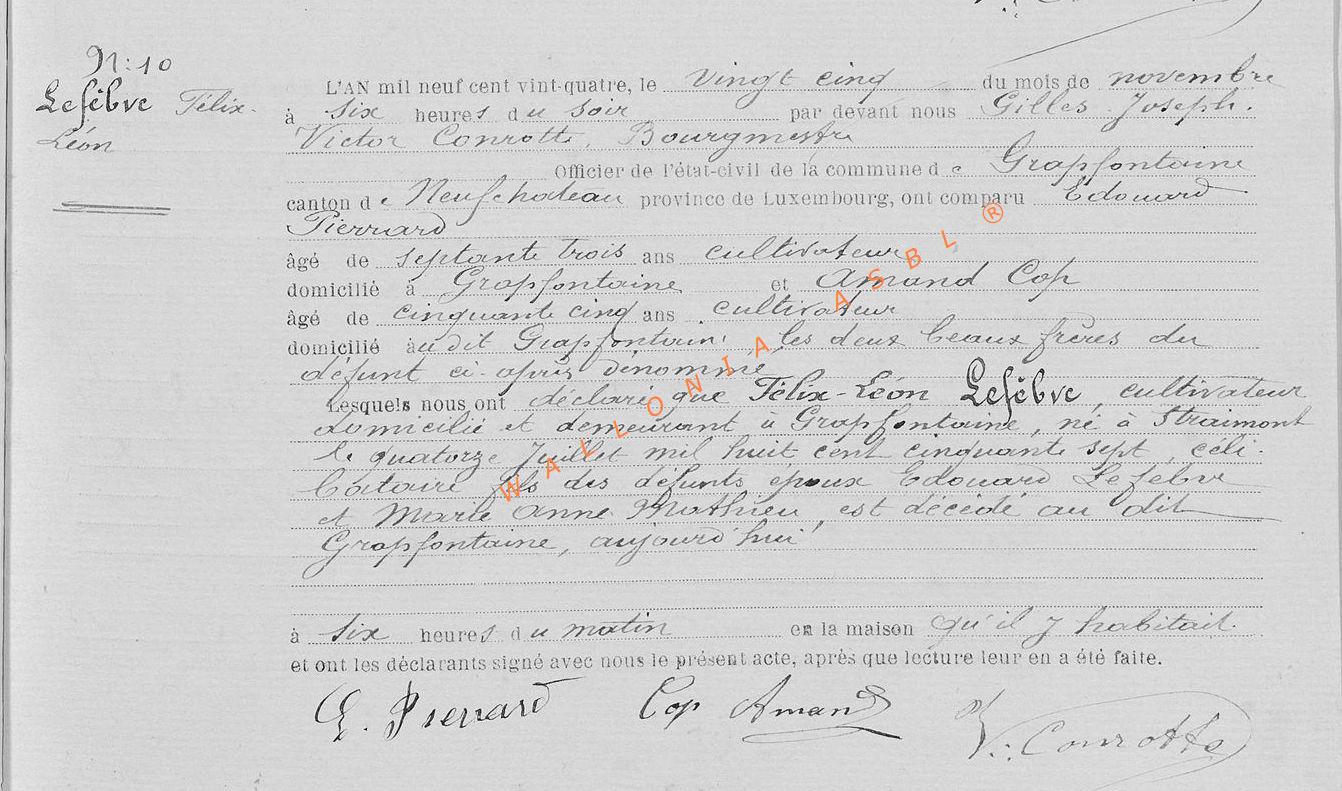 N: 10
Lefèbvre Félix-
Léon
L'AN mil neuf cent vint-quatre, le vingt cinq du mois de novembre
à six heures du soir par devant nous Gilles Joseph.
Victor Conrotte, Bourgmestre
Officier de l'état-civil de la commune de Grapfontaine
canton de Neufchateau province de Luxembourg, ont comparu Edouard
Pierrard
âgé de septante trois ans cultivateur
domicilié à Grapfontaine et Amand Cop
âgé de cinquante cinq ans cultivateur
domicilié audit Grapfontain, les deux beaux frères du
défunt ci-après dénommé
Lesquels nous ont déclaré que Félix-Léon Lefèbvre, cultivateur
domicilié et demeurant à Grapfontaine, né à Straimont
le quatorze Juillet mil huit cent cinquante sept, céli-
bataire fils des défunts époux Edouard Lefebvre
et Marie Anne Mathieu, est décédé au dit
Grapfontaine, aujourd'hui
à six heures du matin en la maison qu'il y habitait.
et ont les déclarants signé avec nous le présent acte, après que lecture leur en a été faite.
E. Pierrard Cop Amand V. Conrotte
WALLONIA ASBL ®